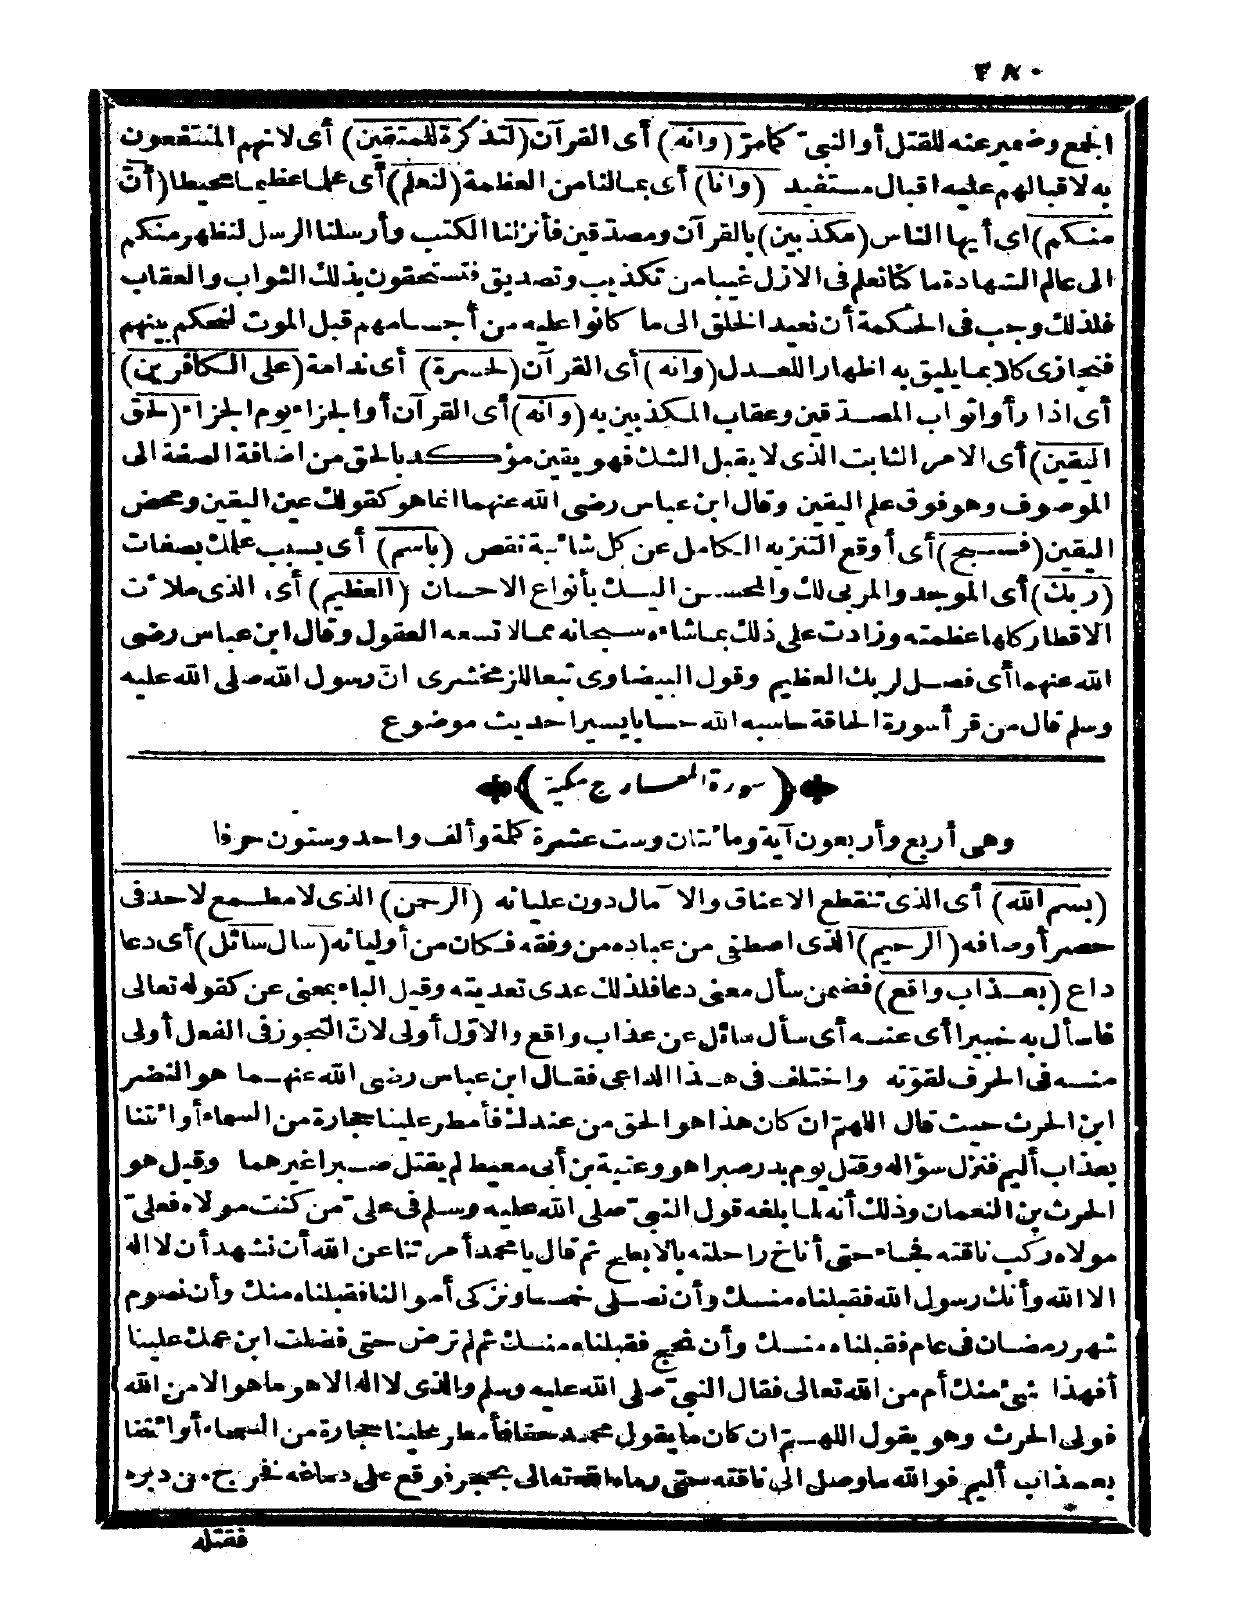 ٣٨٠
الجمع وضمير عنه للقتل أو النبيّ كما مرّ (وانه) أى القرآن (لتذكرة للمتقين) أى لانهم المنتفعون
به لاقبالهم عليه اقبال مستفيد (وانا) أى بمالنا من العظمة (لنعلم) أى علما عظيما محيطا (أنّ
منكم) أى أيها الناس (مكذبين) بالقرآن ومصدّقين فأنزلنا الكتب وأرسلنا الرسل لنظهر منكم
الى عالم الشهادة ما كنا نعلم فى الازل غيبا من تكذيب وتصديق فتستحقون بذلك الثواب والعقاب
فلذلك وجب فى الحكمة أن نعيد الخلق الى ما كانوا عليه من أجسامهم قبل الموت لنحكم بينهم
فنجازى كلا بما يليق به اظهارا للعدل (وانه) أى القرآن (لحسرة) أى ندامة (على الكافرين)
أى اذا رأوا ثواب المصدّقين وعقاب المكذبين به (وانه) أى القرآن أو الجزاء يوم الجزاء (لحق
اليقين) أى الامر الثابت الذى لا يقبل الشك فهو يقين مؤكد بالحق من اضافة الصفة الى
الموصوف وهو فوق علم اليقين وقال ابن عباس رضى الله عنهما انما هو كقولك عين اليقين ومحض
اليقين (فسبح) أى أوقع التنزيه الكامل عن كل شائبة نقص (باسم) أى بسبب علمك بصفات
(ربك) أى الموجد والمربى لك والمحسن اليك بأنواع الاحسان (العظيم) أى الذى ملأت
الاقطار كلها عظمته وزادت على ذلك بما شاءه سبحانه مما لا تسعه العقول وقال ابن عباس رضى
الله عنهما أى فصل لربك العظيم وقول البيضاوى تبعا للزمخشرى انّ رسول الله صلى الله عليه
وسلم قال من قرأ سورة الحاقة حاسبه الله حسابا يسيرا حديث موضوع
(سورة المعارج مكية)
وهى أربع وأربعون آية ومائتان وست عشرة كلمة وألف واحد وستون حرفا
(بسم الله) أى الذى تنقطع الاعناق والآمال دون عليائه (الرحمن) الذى لا مطمع لاحد فى
حصر أوصافه (الرحيم) الذى اصطفى من عباده من وفقه فكان من أوليائه (سال سائل) أى دعا
داع (بعذاب واقع) فضمن سأل معنى دعا فلذلك عدى تعديته وقيل الباء بمعنى عن كقوله تعالى
فاسأل به خبيرا أى عنه أى سأل سائل عن عذاب واقع والاوّل أولى لانّ التجوز فى الفعل أولى
منه فى الحرف لقوّته واختلف فى هذا الداعى فقال ابن عباس رضى الله عنهما هو النضر
ابن الحرث حيث قال اللهمّ ان كان هذا هو الحق من عندك فأمطر علينا حجارة من السماء أو ائتنا
بعذاب أليم فنزل سؤاله وقتل يوم بدر صبرا هو وعتبة بن أبى معيط لم يقتل صبرا غيرهما وقيل هو
الحرث بن النعمان وذلك أنه لما بلغه قول النبيّ صلى الله عليه وسلم فى علىّ من كنت مولاه فعلىّ
مولاه ركب ناقته فجاء حتى أناخ راحلته بالابطح ثم قال يا محمد أمرتنا عن الله أن نشهد أن لا اله
الا الله وأنك رسول الله فقبلناه منك وأن نصلى خمسا ونزكى أموالنا فقبلناه منك وأن نصوم
شهر رمضان فى عام فقبلناه منك وأن نحج فقبلناه منك ثم لم ترض حتى فضلت ابن عمك علينا
أفهذا شئ منك أم من الله تعالى فقال النبيّ صلى الله عليه وسلم والذى لا اله الا هو ما هو الا من الله
فولى الحرث وهو يقول اللهمّ ان كان ما يقول محمد حقا فأمطر علينا حجارة من السماء أو ائتنا
بعذاب أليم فوالله ما وصل الى ناقته حتى رماه الله تعالى بحجر فوقع على دماغه فخرج من دبره
فقتله